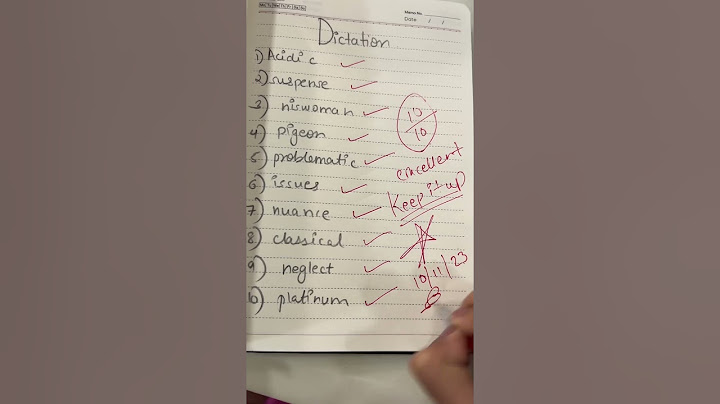 Memo No.
Date / /
Dictation
1) Acidic
2) suspense
3) niswoman
4) pigeon
5) problematic
6) issues
7) nuance
8) classical
9) neglect
10) platinum
10/10
excellent
Keep it up
10/11/23